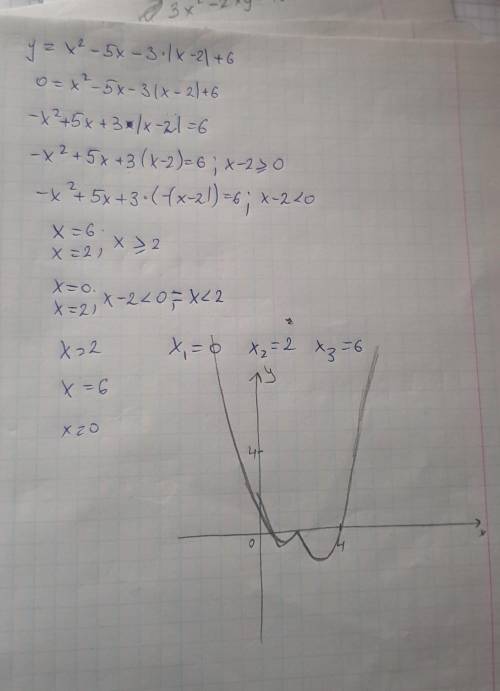 3x²-2xy
y = x² - 5x - 3·|x-2|+6
0 = x² - 5x - 3|x-2|+6
-x²+5x+3·|x-2|=6
-x²+5x+3(x-2)=6; x-2≥0
-x²+5x+3·(-(x-2))=6; x-2<0
x=6
x=2; x≥2
x=0
x=2; x-2<0 = x<2
x=2 x₁=0 x₂=2 x₃=6
x=6
x=0
y
4
0 4 x